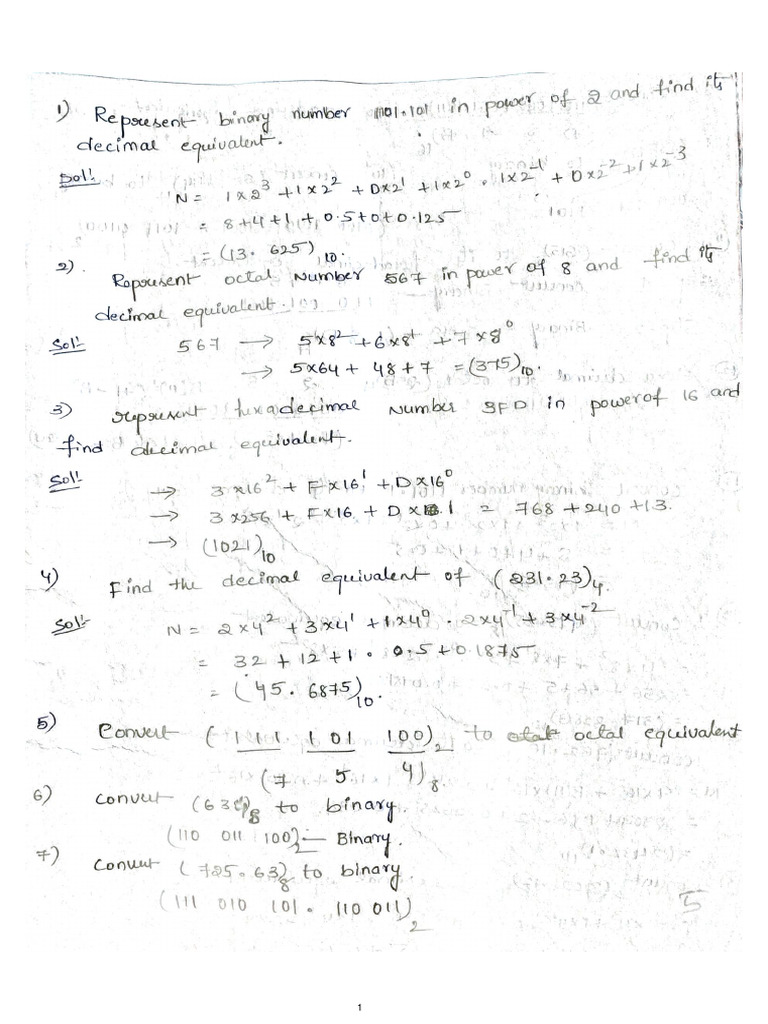 1) Represent binary number 1101.101 in power of 2 and find its
decimal equivalent.
Sol:- N = 1×2³ + 1×2² + 0×2¹ + 1×2⁰ . 1×2⁻¹ + 0×2⁻² + 1×2⁻³
= 8+4+1+0.5+0+0.125
= (13.625)₁₀.
2). Represent octal number 567 in power of 8 and find its
decimal equivalent.
Sol:- 567 → 5×8² + 6×8¹ + 7×8⁰
→ 5×64 + 48 + 7 = (375)₁₀.
3) represent hexadecimal number 3FD in power of 16 and
find decimal equivalent.
Sol:- → 3×16² + F×16¹ + D×16⁰
→ 3×256 + F×16 + D×1 = 768 + 240 + 13.
→ (1021)₁₀
4) Find the decimal equivalent of (231.23)₄.
Sol:- N = 2×4² + 3×4¹ + 1×4⁰ . 2×4⁻¹ + 3×4⁻²
= 32 + 12 + 1 . 0.5 + 0.1875
= (45.6875)₁₀.
5) Convert (111 101 100)₂ to octal equivalent
(7 5 4)₈.
6) Convert (634)₈ to binary.
(110 011 100)₂ — Binary.
7) Convert (725.63)₈ to binary.
(111 010 101 . 110 011)₂
5
1